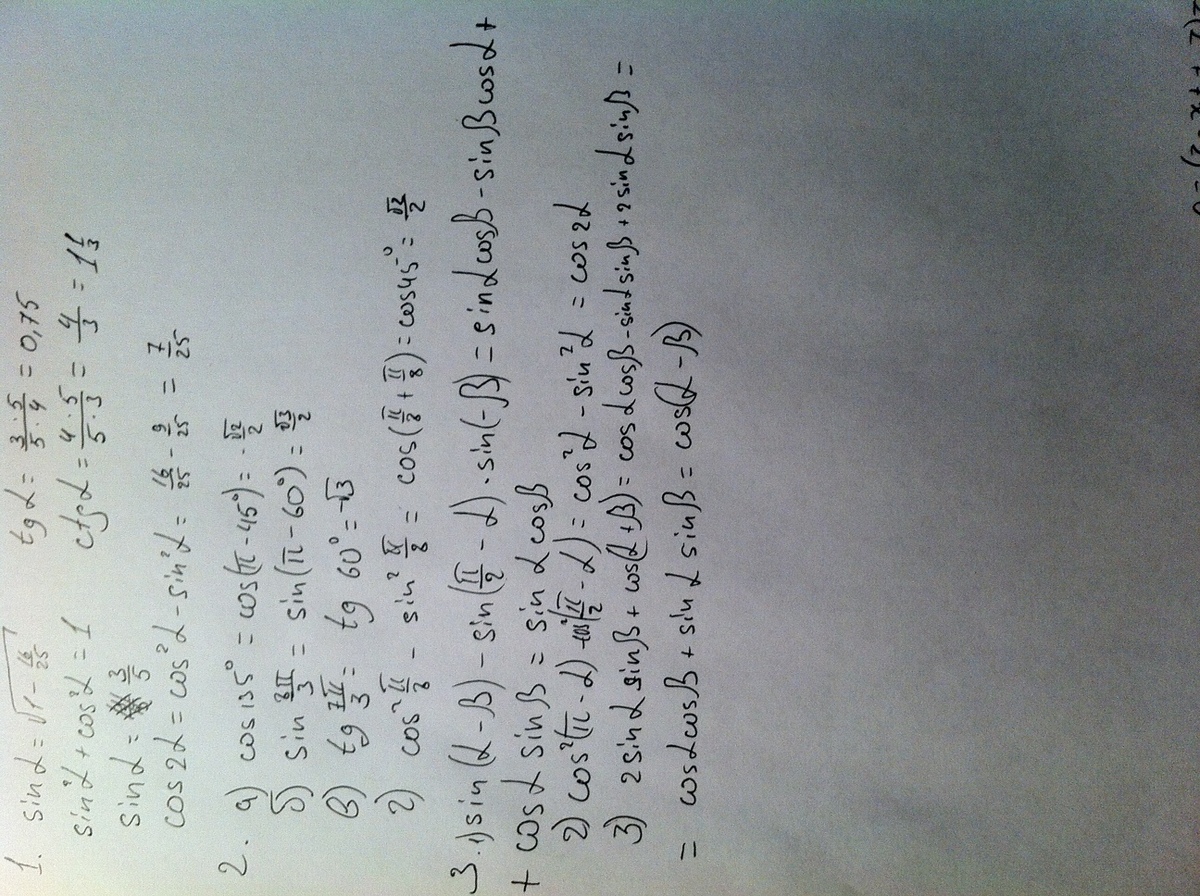 1. sin α = √(1 - 16/25) tg α = (3·5)/(5·4) = 0,75
sin²α + cos²α = 1 ctg α = (4·5)/(5·3) = 4/3 = 1 1/3
sin α = 3/5
cos 2α = cos²α - sin²α = 16/25 - 9/25 = 7/25
2. а) cos 135° = cos(π - 45°) = -√2/2
б) sin 8π/3 = sin(π - 60°) = √3/2
в) tg 7π/3 = tg 60° = √3
г) cos² π/8 - sin² π/8 = cos(π/8 + π/8) = cos 45° = √2/2
3. 1) sin(α - β) - sin(π/2 - α) · sin(-β) = sin α cos β - sin β cos α +
+ cos α sin β = sin α cos β
2) cos²(π - α) - cos²(π/2 - α) = cos²α - sin²α = cos 2α
3) 2 sin α sin β + cos(α + β) = cos α cos β - sin α sin β + 2 sin α sin β =
= cos α cos β + sin α sin β = cos(α - β)